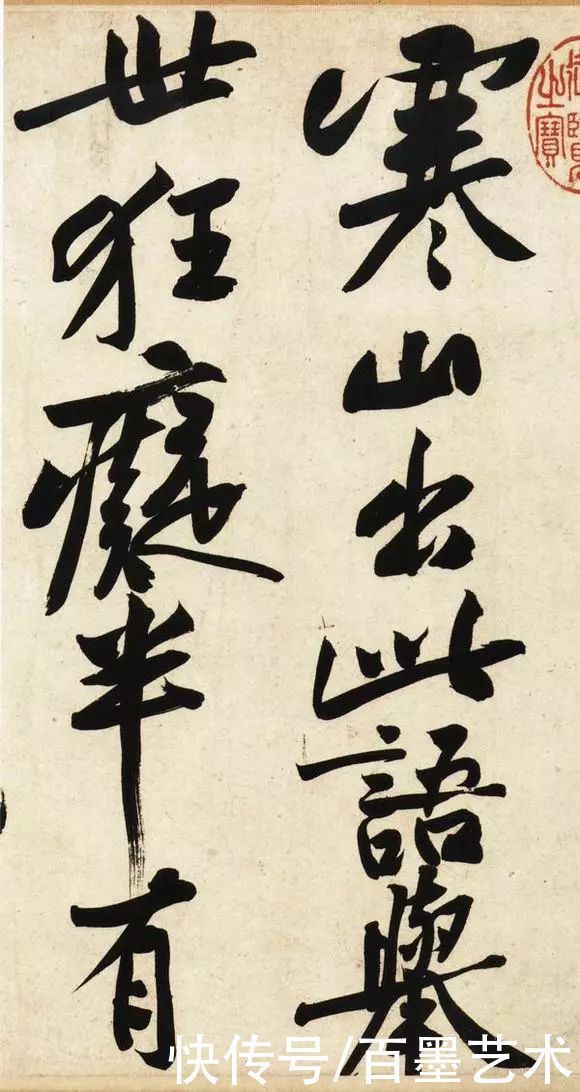 御覽之寶
寒山出此語舉
世狂癡半有
快传号/百墨艺术